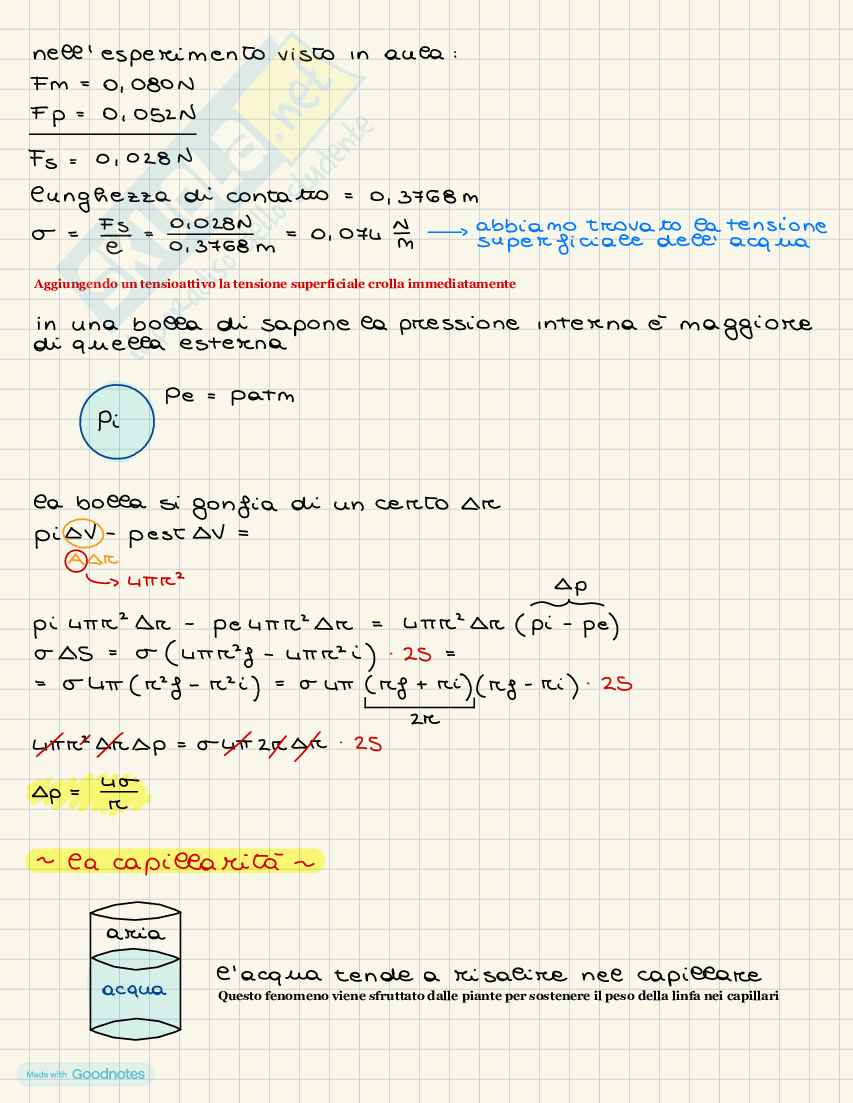 nell'esperimento visto in aula:
Fm = 0,080N
Fp = 0,052N
Fs = 0,028N
lunghezza di contatto = 0,3768m
σ = Fs/l = 0,028N/0,3768m = 0,074 N/m → abbiamo trovato la tensione
superficiale dell'acqua
Aggiungendo un tensioattivo la tensione superficiale crolla immediatamente
in una bolla di sapone la pressione interna è maggiore
di quella esterna
pe = patm
Pi
la bolla si gonfia di un certo Δr
pi ΔV - pest ΔV =
A Δr
→ 4πr²
Δp
pi 4πr² Δr - pe 4πr² Δr = 4πr² Δr (pi - pe)
σ ΔS = σ (4πr²f - 4πr²i) · 2S =
= σ 4π (r²f - r²i) = σ 4π (rf + ri)(rf - ri) · 2S
2r
4πr² Δr Δp = σ 4π 2r Δr · 2S
Δp = 4σ/r
~ la capillarità ~
aria
acqua
l'acqua tende a risalire nel capillare
Questo fenomeno viene sfruttato dalle piante per sostenere il peso della linfa nei capillari
Made with Goodnotes
SKUOLA.net